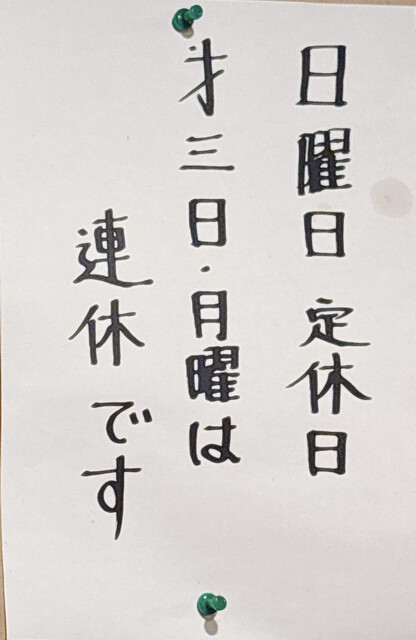 日曜日 定休日
才三日・月曜は
連休です